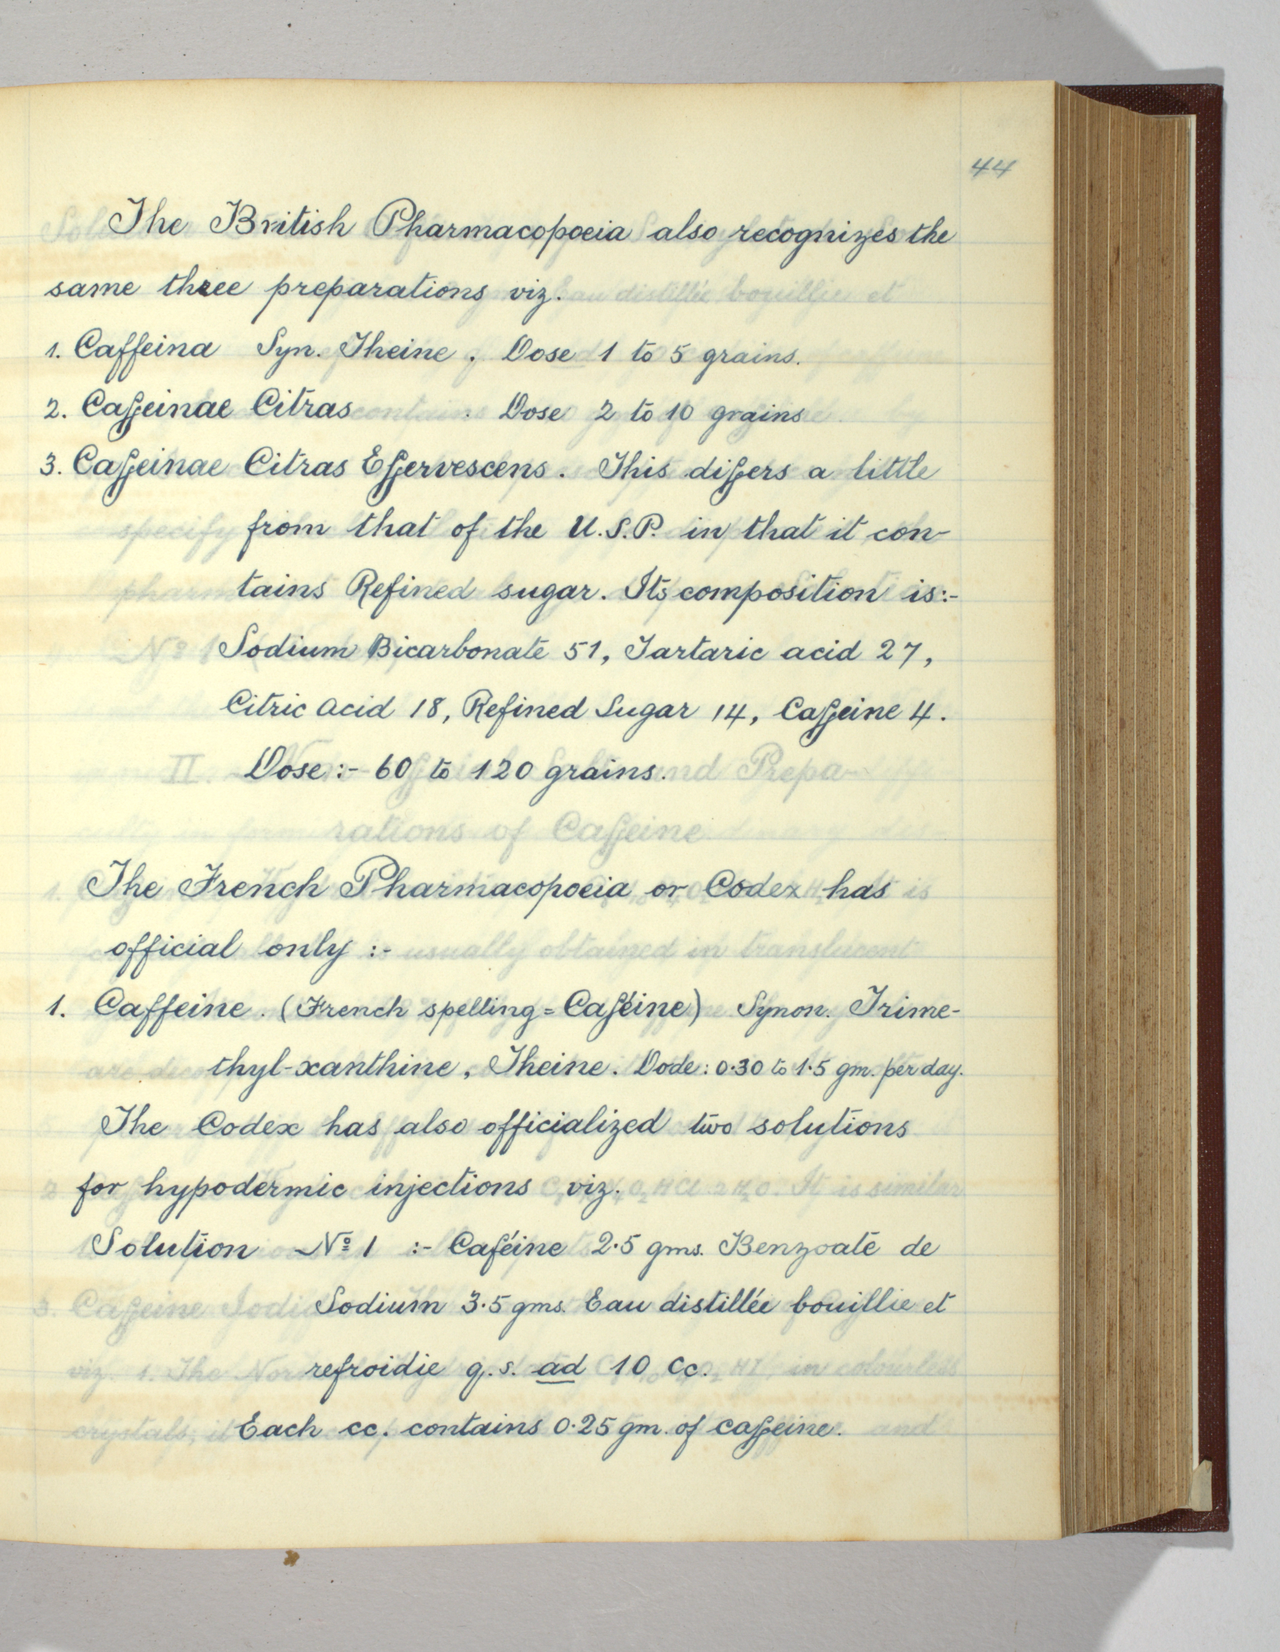 44
The British Pharmacopoeia also recognizes the
same three preparations viz.
1. Caffeina Syn. Theine. Dose 1 to 5 grains.
2. Caffeinae Citras . Dose 2 to 10 grains
3. Caffeinae Citras Effervescens. This differs a little
from that of the U.S.P. in that it con-
tains Refined sugar. Its composition is:-
Sodium Bicarbonate 51, Tartaric acid 27,
Citric acid 18, Refined Sugar 14, Caffeine 4.
Dose:- 60 to 120 grains.
The French Pharmacopoeia or Codex has
official only :-
1. Caffeine. (French spelling = Caféine) Synon. Trime-
thyl-xanthine, Theine. Dode: 0.30 to 1.5 gm. per day.
The Codex has also officialized two solutions
for hypodermic injections viz.
Solution Nº 1 :- Caféine 2.5 gms. Benzoate de
Sodium 3.5 gms. Eau distillée bouillie et
refroidie q.s. ad 10 cc.
Each cc. contains 0.25 gm. of caffeine.